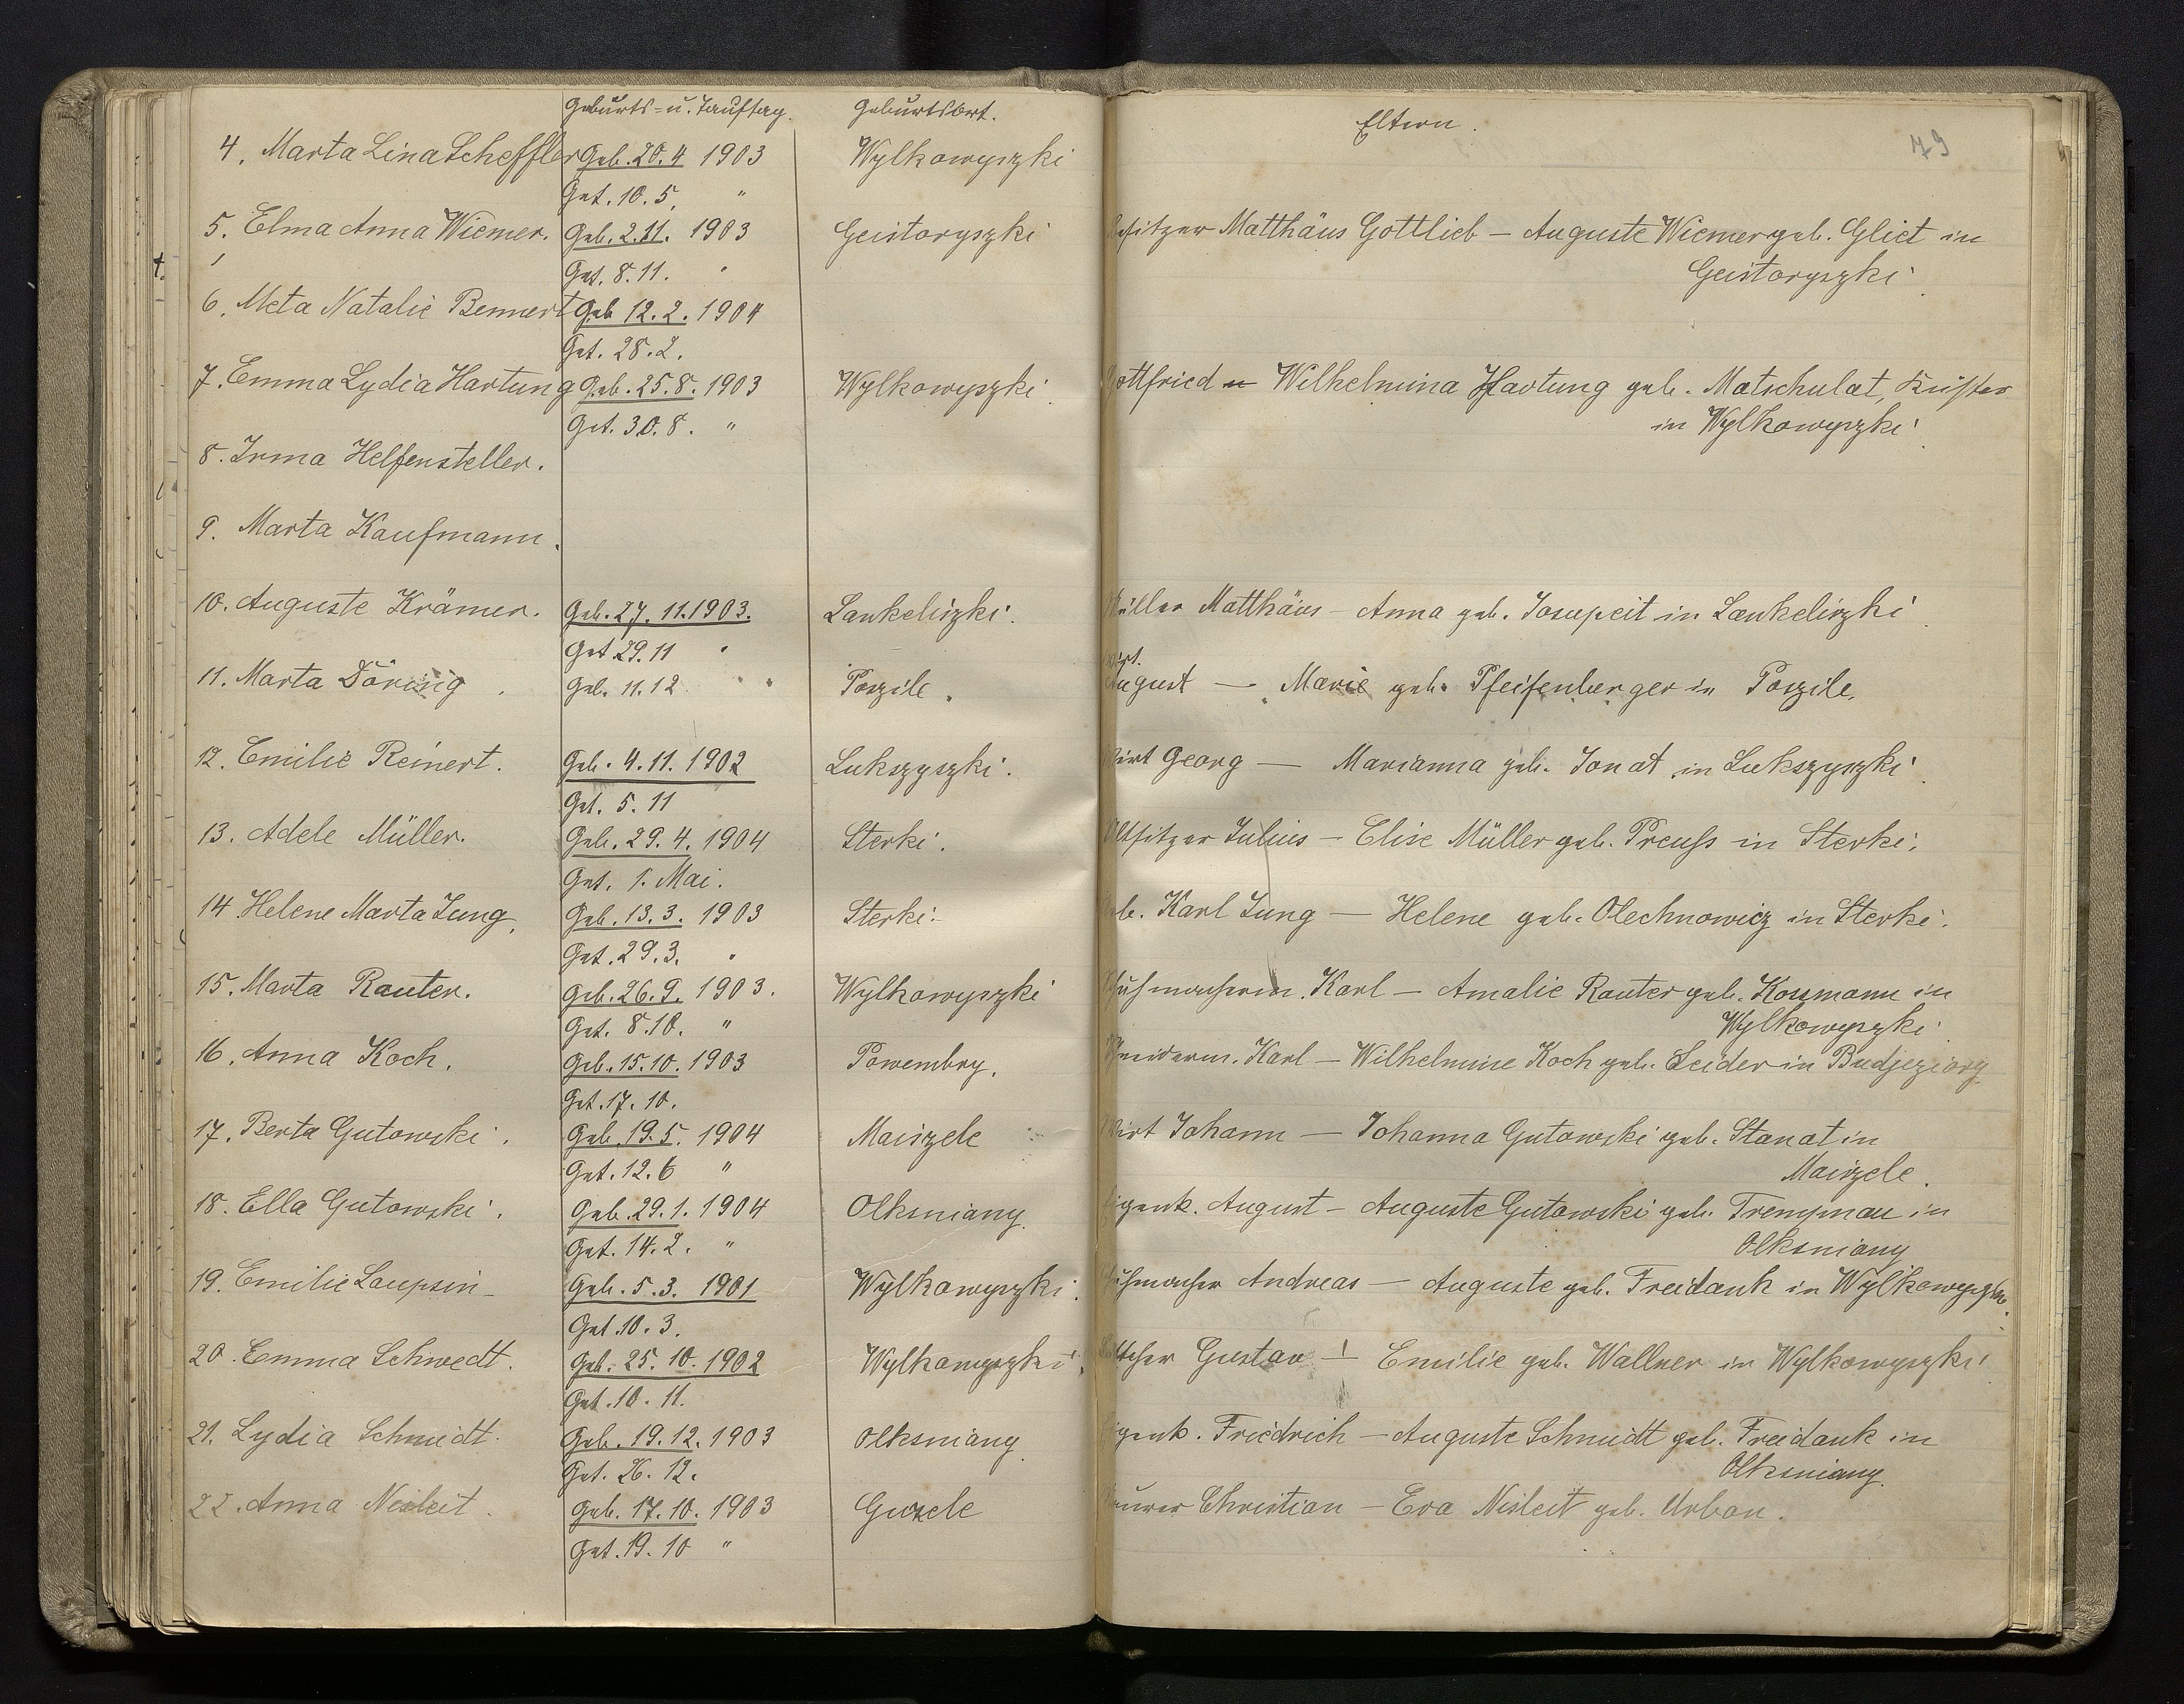 Geburts= u. Tauftag. Geburtsort. Eltern.
79
4. Marta Lina Scheffler Geb. 20.4 1903 Wylkowyszki
Get. 10. 5. "
5. Elma Anna Wiemer. Geb. 2.11. 1903 Geistoryszki Besitzer Matthäus Gottlieb — Auguste Wiemer geb. Gliet in
Get. 8.11. " Geistoryszki.
6. Meta Natalie Bennert Geb 12.2. 1904
Get. 28.2.
7. Emma Lydia Hartung Geb. 25.8. 1903 Wylkowyszki. Gottfried u Wilhelmina Hartung geb. Matschulat, Küster
Get. 30.8. " in Wylkowyszki.
8. Irma Helfensteller.
9. Marta Kaufmann.
10. Auguste Krämer. Geb. 27. 11. 1903. Lankeliszki. Müller Matthäus — Anna geb. Josupeit in Lankeliszki.
Get 29.11 "
Wirt.
11. Marta Döring. Geb. 11.12 " " Poszile. August — Marie geb. Pfeifenberger in Poszile.
12. Emilie Reinert. Geb. 4. 11. 1902 Lukszyszki. Wirt Georg — Marianna geb. Jonat in Lukszyszki.
Get. 5. 11
13. Adele Müller. Geb. 29. 4. 1904 Sterki. Altsitzer Julius — Elise Müller geb. Preuß in Sterki.
Get. 1. Mai.
14 Helene Marta Jung. Geb. 13. 3. 1903 Sterki. Karl Jung — Helene geb. Olechnowicz in Sterki.
Get. 29.3. "
15. Marta Rauter. Geb. 26.9. 1903. Wylkowyszki Schuhmacherm. Karl — Amalie Rauter geb. Kossmann in
Get. 8.10. " Wylkowyszki.
16. Anna Koch. Geb. 15.10. 1903 Powembry. Schneiderm. Karl — Wilhelmine Koch geb. Leider in Budjeziory
Get. 17. 10.
17. Berta Gutowski. Geb. 19.5. 1904 Maiszele Wirt Johann — Johanna Gutowski geb. Stanat in
Get. 12.6 " Maiszele.
18. Ella Gutowski. Geb. 29.1. 1904 Olksniany. Eigenk. August — Auguste Gutowski geb. Trempnau in
Get. 14.2. " Olksniany
19. Emilie Laupsin Geb. 5.3. 1901 Wylkowyszki. Schuhmacher Andreas — Auguste geb. Freidank in Wylkowyszki.
Get. 10. 3.
20. Emma Schwedt. Geb. 25. 10. 1902 Wylkowyszki. Böttcher Gustav — Emilie geb. Wallner in Wylkowyszki.
Get. 10. 11.
21. Lydia Schmidt. Geb. 19.12. 1903 Olksniany. Eigenk. Friedrich — Auguste Schmidt geb. Freidank in
Get. 26. 12. Olksniany.
22. Anna Nisleit. Geb. 17. 10. 1903 Guzele Maurer Christian — Eva Nisleit geb. Urban.
Get. 19. 10 "